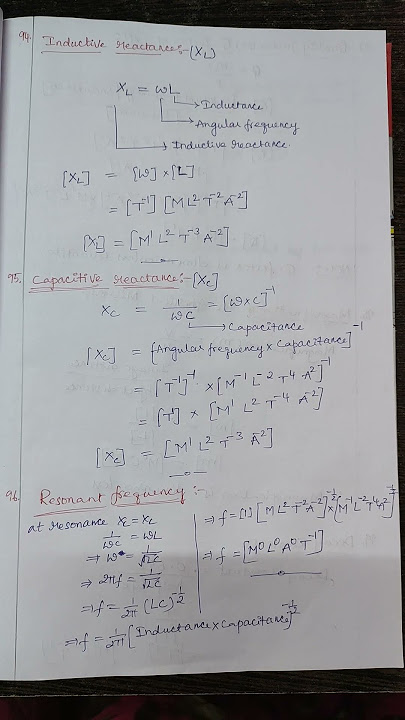 94. Inductive reactance:-(X_L)
X_L = ωL
Inductance
Angular frequency
Inductive reactance.
[X_L] = [ω] × [L]
= [T⁻¹] [M L² T⁻² A⁻²]
[X_L] = [M¹ L² T⁻³ A⁻²]
95. Capacitive reactance:-[X_C]
X_C = 1/ωC = [ω×C]⁻¹
Capacitance
[X_C] = [Angular frequency × Capacitance]⁻¹
= [T⁻¹]⁻¹ × [M⁻¹ L⁻² T⁴ A²]⁻¹
= [T¹] × [M¹ L² T⁻⁴ A⁻²]
[X_C] = [M¹ L² T⁻³ A⁻²]
96. Resonant frequency:-
at resonance X_L = X_L
1/ωC = ωL
⇒ ω = 1/√LC
⇒ 2πf = 1/√LC
⇒ f = 1/2π (LC)^-1/2
⇒ f = 1/2π [Inductance × Capacitance]^-1/2
⇒ f = [1] [M L² T⁻² A⁻²]^-1/2 × [M⁻¹ L⁻² T⁴ A²]^-1/2
⇒ f = [M⁰ L⁰ A⁰ T⁻¹]